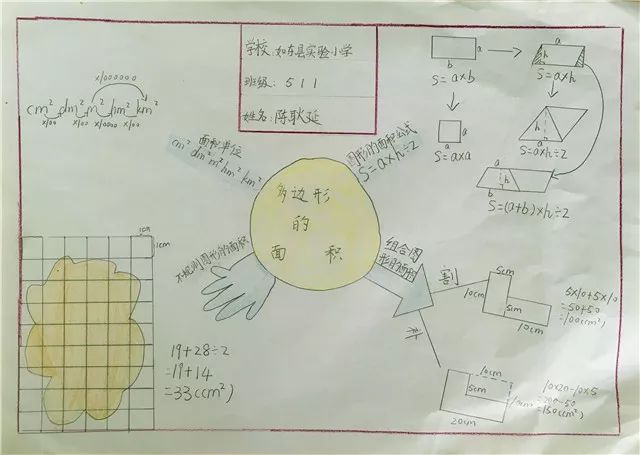 学校：如东县实验小学
班级：511
姓名：陈耿延
x1000000
cm² dm² m² hm² km²
x100 x100 x10000 x100
面积单位
cm² dm² m² hm² km²
图形的面积公式
S=a×h÷2
多边形
的
面积
不规则图形的面积
组合图
形的面积
割
补
a
b
S=a×b
a
h
S=a×h
a
a
S=a×a
h
a
S=a×h÷2
a
h
b
S=(a+b)×h÷2
1cm
1cm
19+28÷2
=19+14
=33(cm²)
5cm
10cm
5cm
10cm
5×10+5×10
=50+50
=100(cm²)
10cm
5cm
10cm
20cm
10×20-10×5
=200-50
=150(cm²)